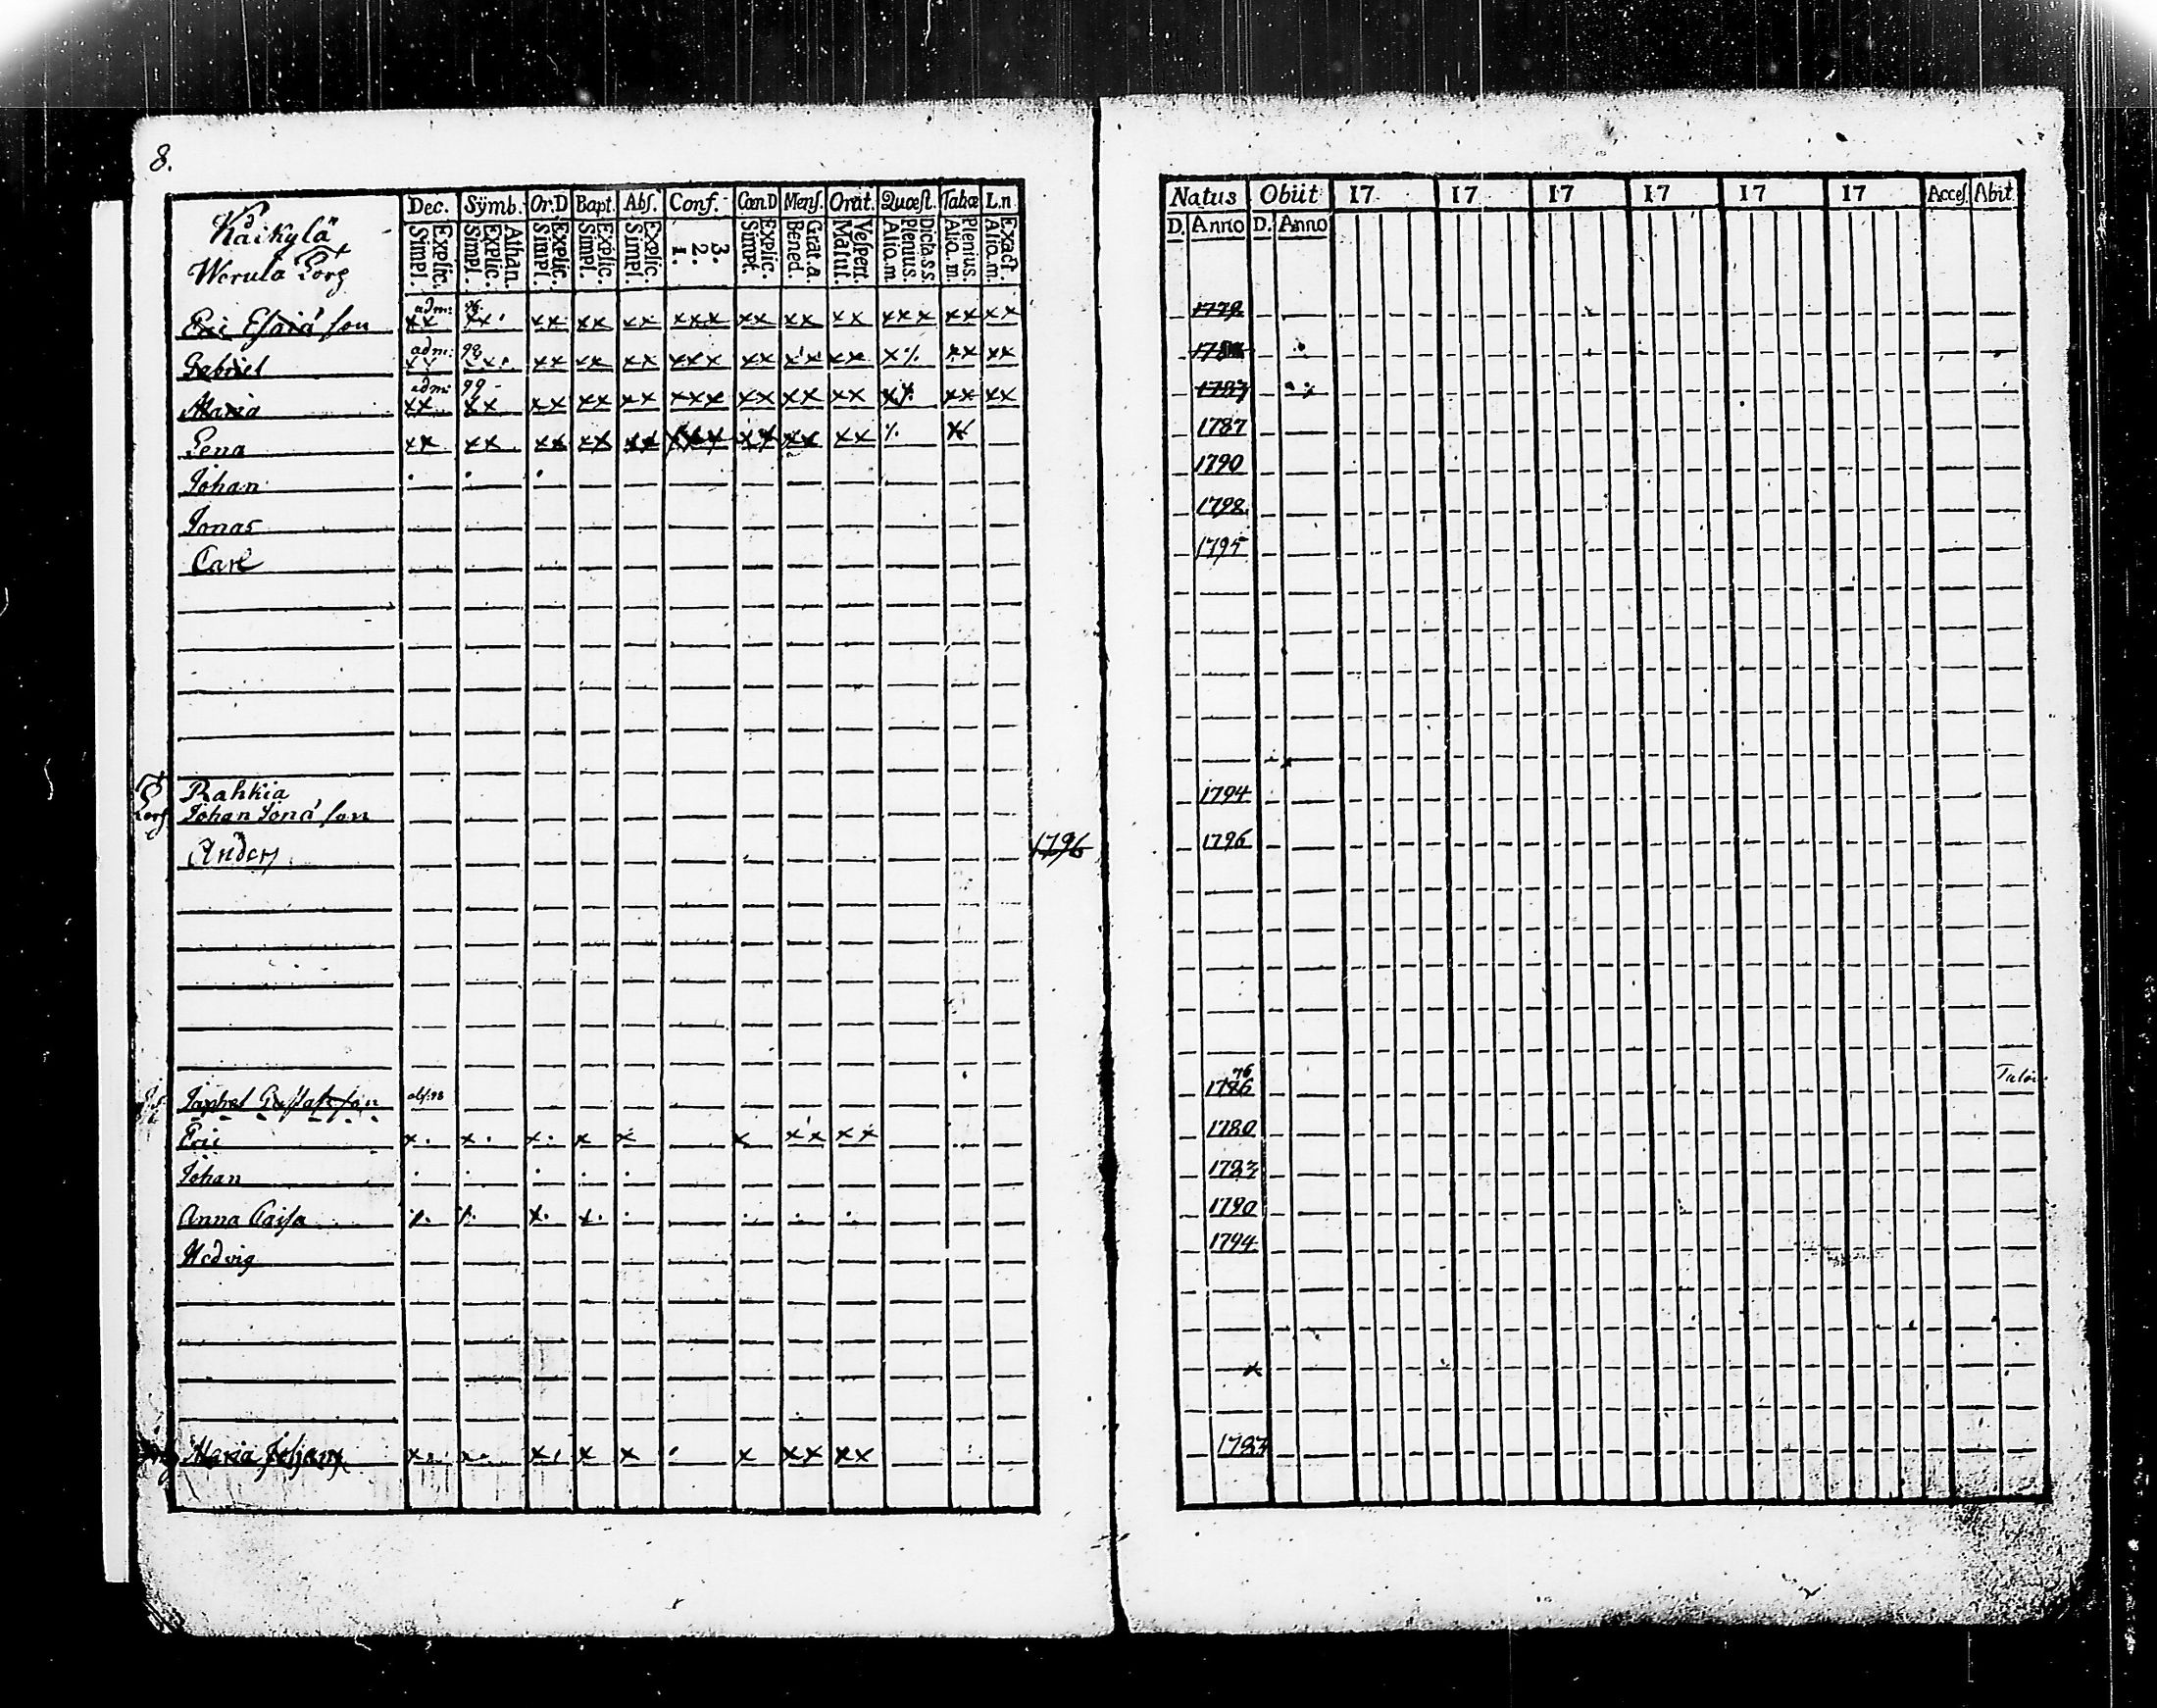 8.
Käikylä
Werula Torp
Dec. Sÿmb. Or.D Bapt. Abſ. Conf. Cœn.D Menſ. Orat. Quæſt. Tabæ L.n
Explic. Simpl. Athan. Explic. Simpl. Explic. Simpl. Explic. Simpl. Explic. Simpl. 3. 2. 1. Explic. Simpl. Grat.a. Bened. Veſpert. Matut. Dicta.s.s. Plenius. Alio.m. Plenius. Alio.m. Exact. Alio.m.
Natus Obiit 17 17 17 17 17 17 Acceſ. Abiit
D. Anno D. Anno
Eric Eſaiæ ſon adm: xx xx xx xx xx xxx xx xx xx xxx xx xx 1779
Gabriel adm: 98 xx xx xx xx xx xxx xx xx xx x% xx xx
Maria adm: 99 xx xx xx xx xx xxx xx xx xx x% xx xx 1783
Lena xx xx xx xx xx xxx xx xx xx 1787
Johan 1790
Jonas 1798
Carl 1795
Rahkia
Torp Johan Jonæ ſon 1794
Anders 1796 1796
Japhet Guſtafſon abſ. 98 76 1786
Eric x. x. x. x x x xx xx 1780
Johan 1783
Anna Caiſa x. x. 1790
Hedvig 1794
Maria x x x xx xx 1783